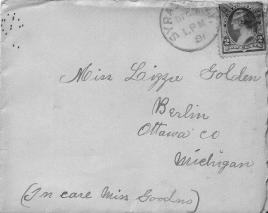 SYRA
1 PM
Miss Lizzie Golden
Berlin
Ottawa Co
Michigan
(In care Miss Goodno)